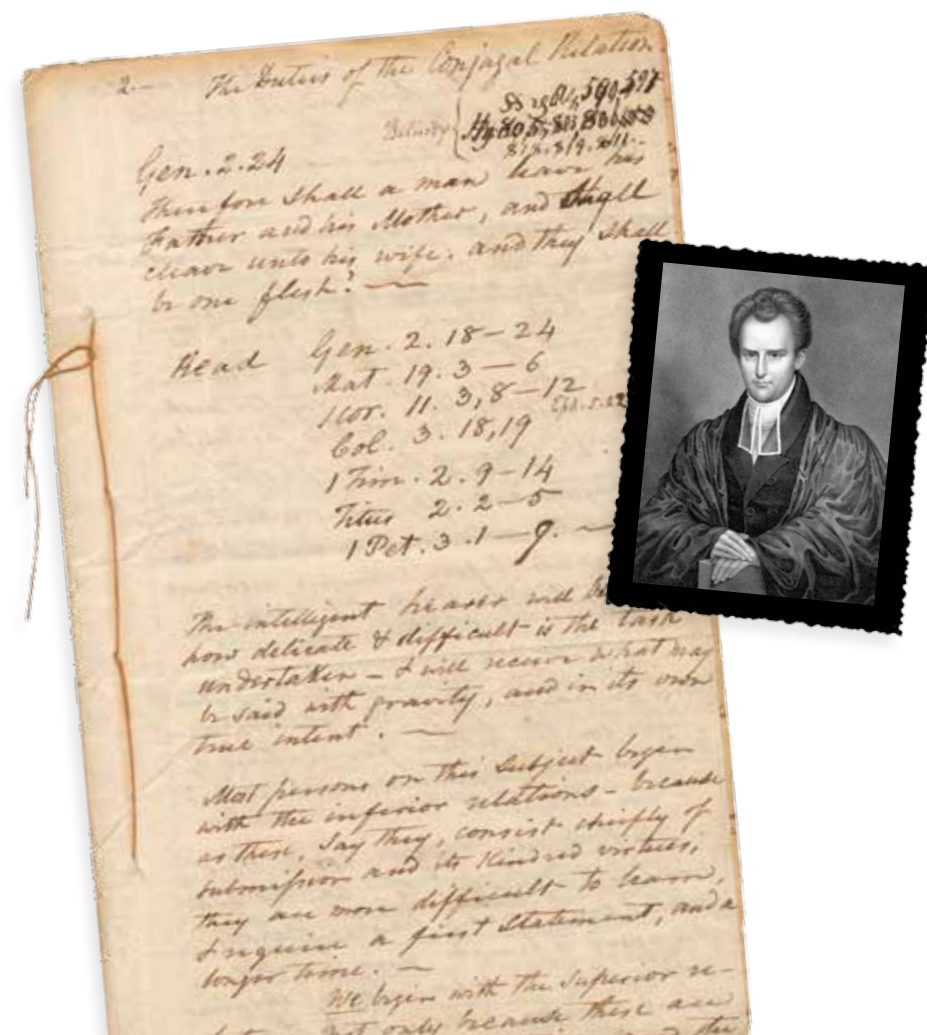 2.— The Duties of the Conjugal Relation.
590,597
Gen. 2. 24
Therefore shall a man leave his
Father and his Mother, and shall
cleave unto his wife. and they shall
be one flesh? —
Read Gen. 2. 18—24
Mat. 19. 3—6
1 Cor. 11. 3, 8—12
Eph. 5. 22
Col. 3. 18, 19
1 Tim. 2. 9—14
Titus 2. 2—5
1 Pet. 3. 1—7. —
The intelligent hearer will
how delicate & difficult is the task
undertaken — & will receive what may
be said with gravity, and in its own
true intent. —
Most persons on this Subject began
with the inferior relations — because
as these, Say they, consist chiefly of
submission and its Kindred virtues,
they are more difficult to learn,
& require a first Statement, and a
longer time. —
We begin with the Superior re-
not only because these are